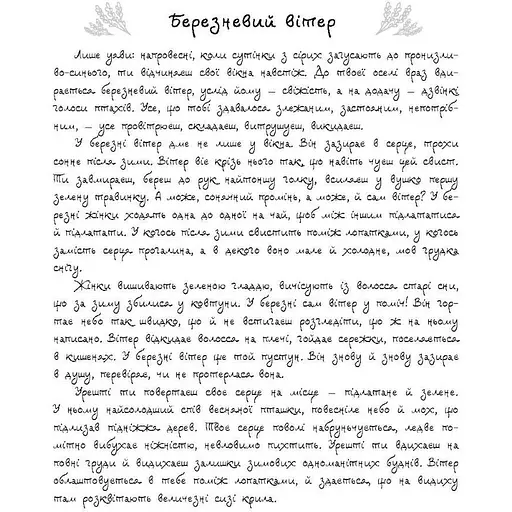 Березневий вітер
Лише уяви: напровесні, коли сутінки з сірих загусають до пронизли-
во-синього, ти відчиняєш свої вікна навстіж. До твоєї оселі враз вди-
рається березневий вітер, услід йому — свіжість, а на додачу — дзвінкі
голоси птахів. Усе, що тобі здавалося злежаним, застояним, непотріб-
ним, — усе провітрюєш, складаєш, витрушуєш, викидаєш.
У березні вітер дме не лише у вікна. Він зазирає в серце, трохи
сонне після зими. Вітер віє крізь нього так, що навіть чуєш цей свист.
Ти завмираєш, береш до рук найтоншу голку, всиляєш у вушко першу
зелену травинку. А може, сонячний промінь, а може, й сам вітер? У бе-
резні жінки ходять одна до одної на чай, щоб між іншим підлататися
й підлатати. У когось після зими свистить поміж лопатками, у когось
замість серця прогалина, а в декого воно мале й холодне, мов грудка
снігу.
Жінки вишивають зеленою гладдю, вичісують із волосся старі сни,
що за зиму збилися у ковтуни. У березні сам вітер у поміч! Він гор-
тає небо так швидко, що й не встигаєш розгледіти, що ж на ньому
написано. Вітер відкидає волосся на плечі, гойдає сережки, поселяється
в кишенях. У березні вітер ще той пустун. Він знову й знову зазирає
в душу, перевіряє, чи не протерлася вона.
Урешті ти повертаєш своє серце на місце — підлатане й зелене.
У ньому найсолодший спів весняної пташки, повесніле небо й мох, що
підлизав підніжжя дерев. Твоє серце поволі набруньчується, ледве по-
мітно вибухає ніжністю, невловимо пихтить. Урешті ти вдихаєш на
повні груди й видихаєш залишки зимових одноманітних буднів. Вітер
облаштовується в тебе поміж лопатками, й здається, що на видиху
там розквітають величезні сизі крила.